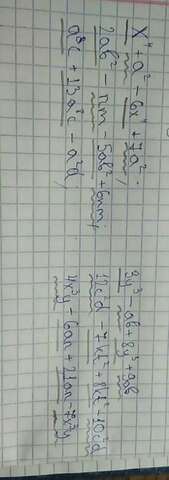 x⁴ + a² - 6x⁴ + 7a²;
2ab² - nm - 5ab² + 6nm;
a²c + 13a²c - a²d,
9y³ - ab + 8y³ + 9ab
12c²d - 7kt² + 8kt² - 10c²d
4x³y - 6an + 21an - 7x³y